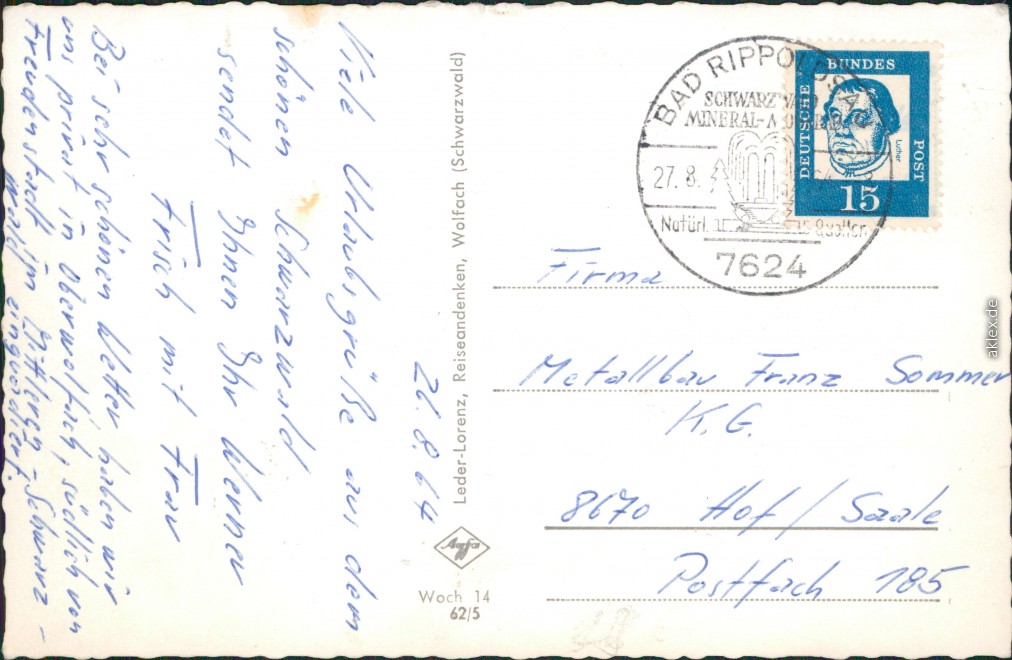 26.8.64
Viele Urlaubsgrüße aus dem
schönen Schwarzwald
sendet Ihnen Ihr Werner
Frisch mit Frau
Bei sehr schönem Wetter haben wir
uns privat in Oberwolfach, südlich von
Freudenstadt im Mittleren-Schwarz-
wald einquartiert.
Leder-Lorenz, Reiseandenken, Wolfach (Schwarzwald)
Agfa
Woch 14
62/5
BAD RIPPOLDSAU
SCHWARZWALD
MINERAL-MOORBAD
27.8.
Natürl.
Quellen
7624
DEUTSCHE
BUNDES
POST
Luther
15
Firma
Metallbau Franz Sommer
K.G.
8670 Hof/Saale
Postfach 185
aklex.de